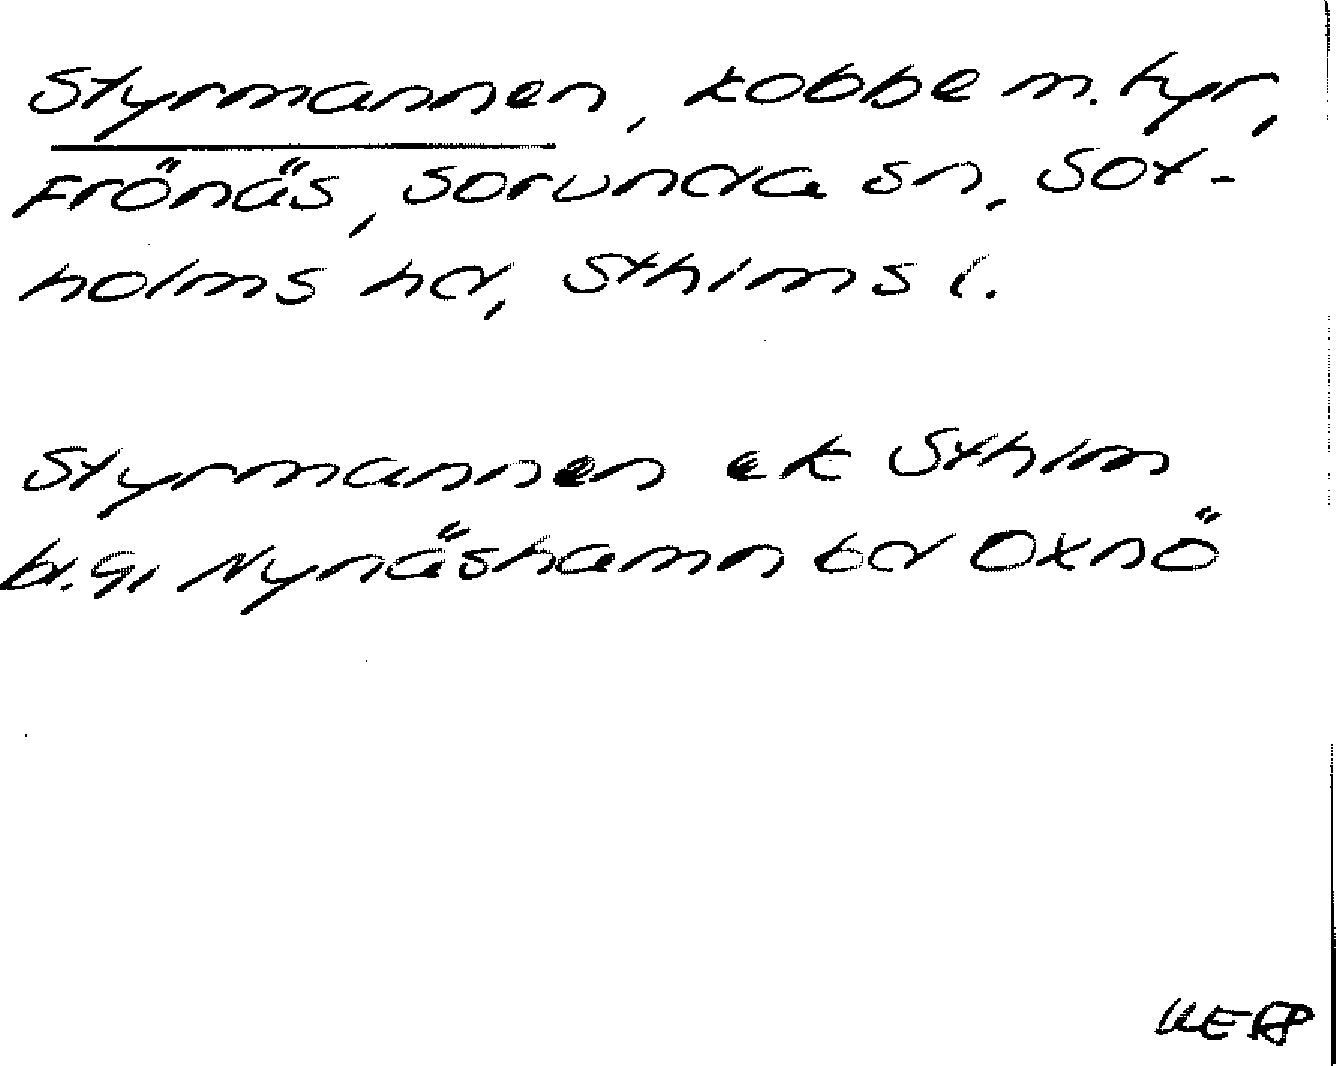 Styrmannen, kobbe m. fyr,
Frönäs, Sorunda sn, Sot-
holms hd, Sthlms l.
Styrmannen ek Sthlm
bl. 9, Nynäshamn bd Oxnö